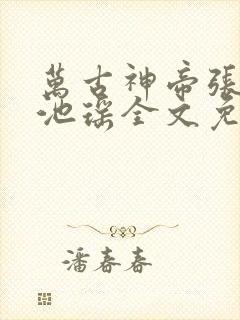 萬古神帝張
池瑤全文免
潘春春